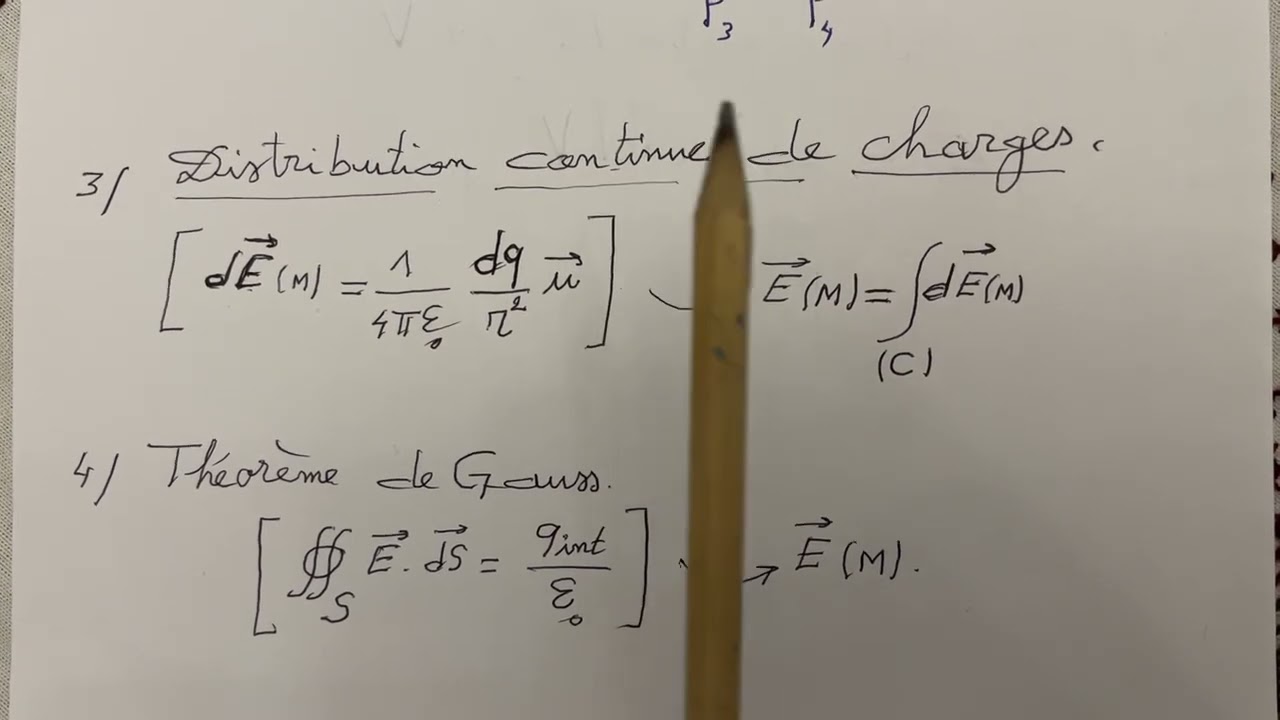 P₃ P₄
3/ Distribution continue de charges.
[ dE⃗(M) = 1/(4πε₀) dq/r² u⃗ ] E⃗(M) = ∫(C) dE⃗(M)
4/ Théorème de Gauss.
[ ∯S E⃗ . dS⃗ = qint/ε₀ ] → E⃗(M).